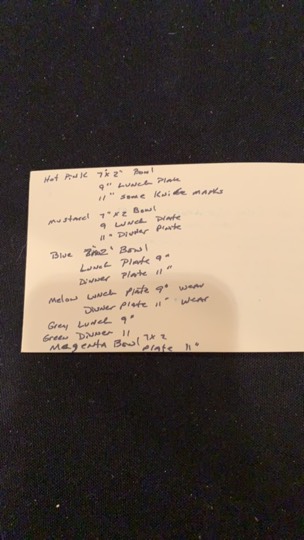 Hot Pink 7x2" Bowl
9" Lunch Plate
11" some Knife marks
Mustard 7"x2 Bowl
9 Lunch Plate
11" Dinner Plate
Blue Bowl
Lunch Plate 9"
Dinner Plate 11"
Melow Lunch Plate 9" wear
Dinner Plate 11" wear
Grey Lunch 9"
Green Dinner 11
Magenta Bowl 7x2
Plate 11"